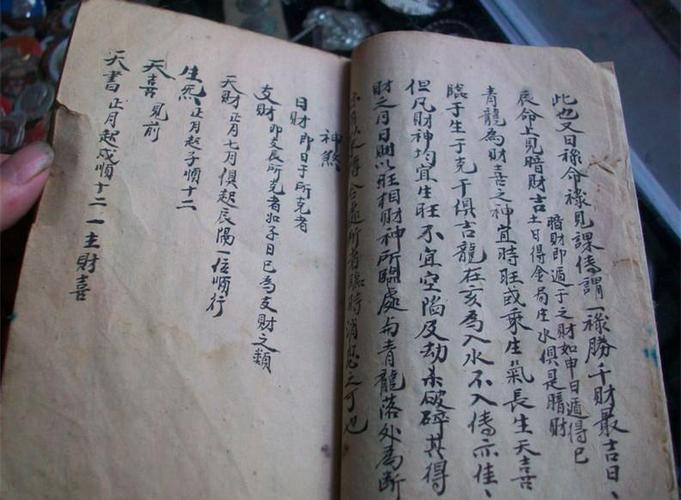 此也又曰祿命祿見課傳謂一祿勝千財最吉日
辰命上見暗財吉暗財即遁干之財如申日遁得巳
土日得金局庄水俱是暗財
青龍為財喜之神宜時旺或乘生氣長生天喜
臨于生于克干俱吉龍在亥為入水不入傳亦佳
但凡財神均宜生旺不宜空陷及劫杀破碎其得
財之月日則以旺相財神所臨處与青龍落處為断
合處所者臨時消息之可也
神煞
日財即日干所克者
支財即支辰所克者如子日巳為支財之類
天財正月七月俱起辰陽一位順行
生炁正月起子順十二
天喜見前
天書正月起戍順十二一主財喜